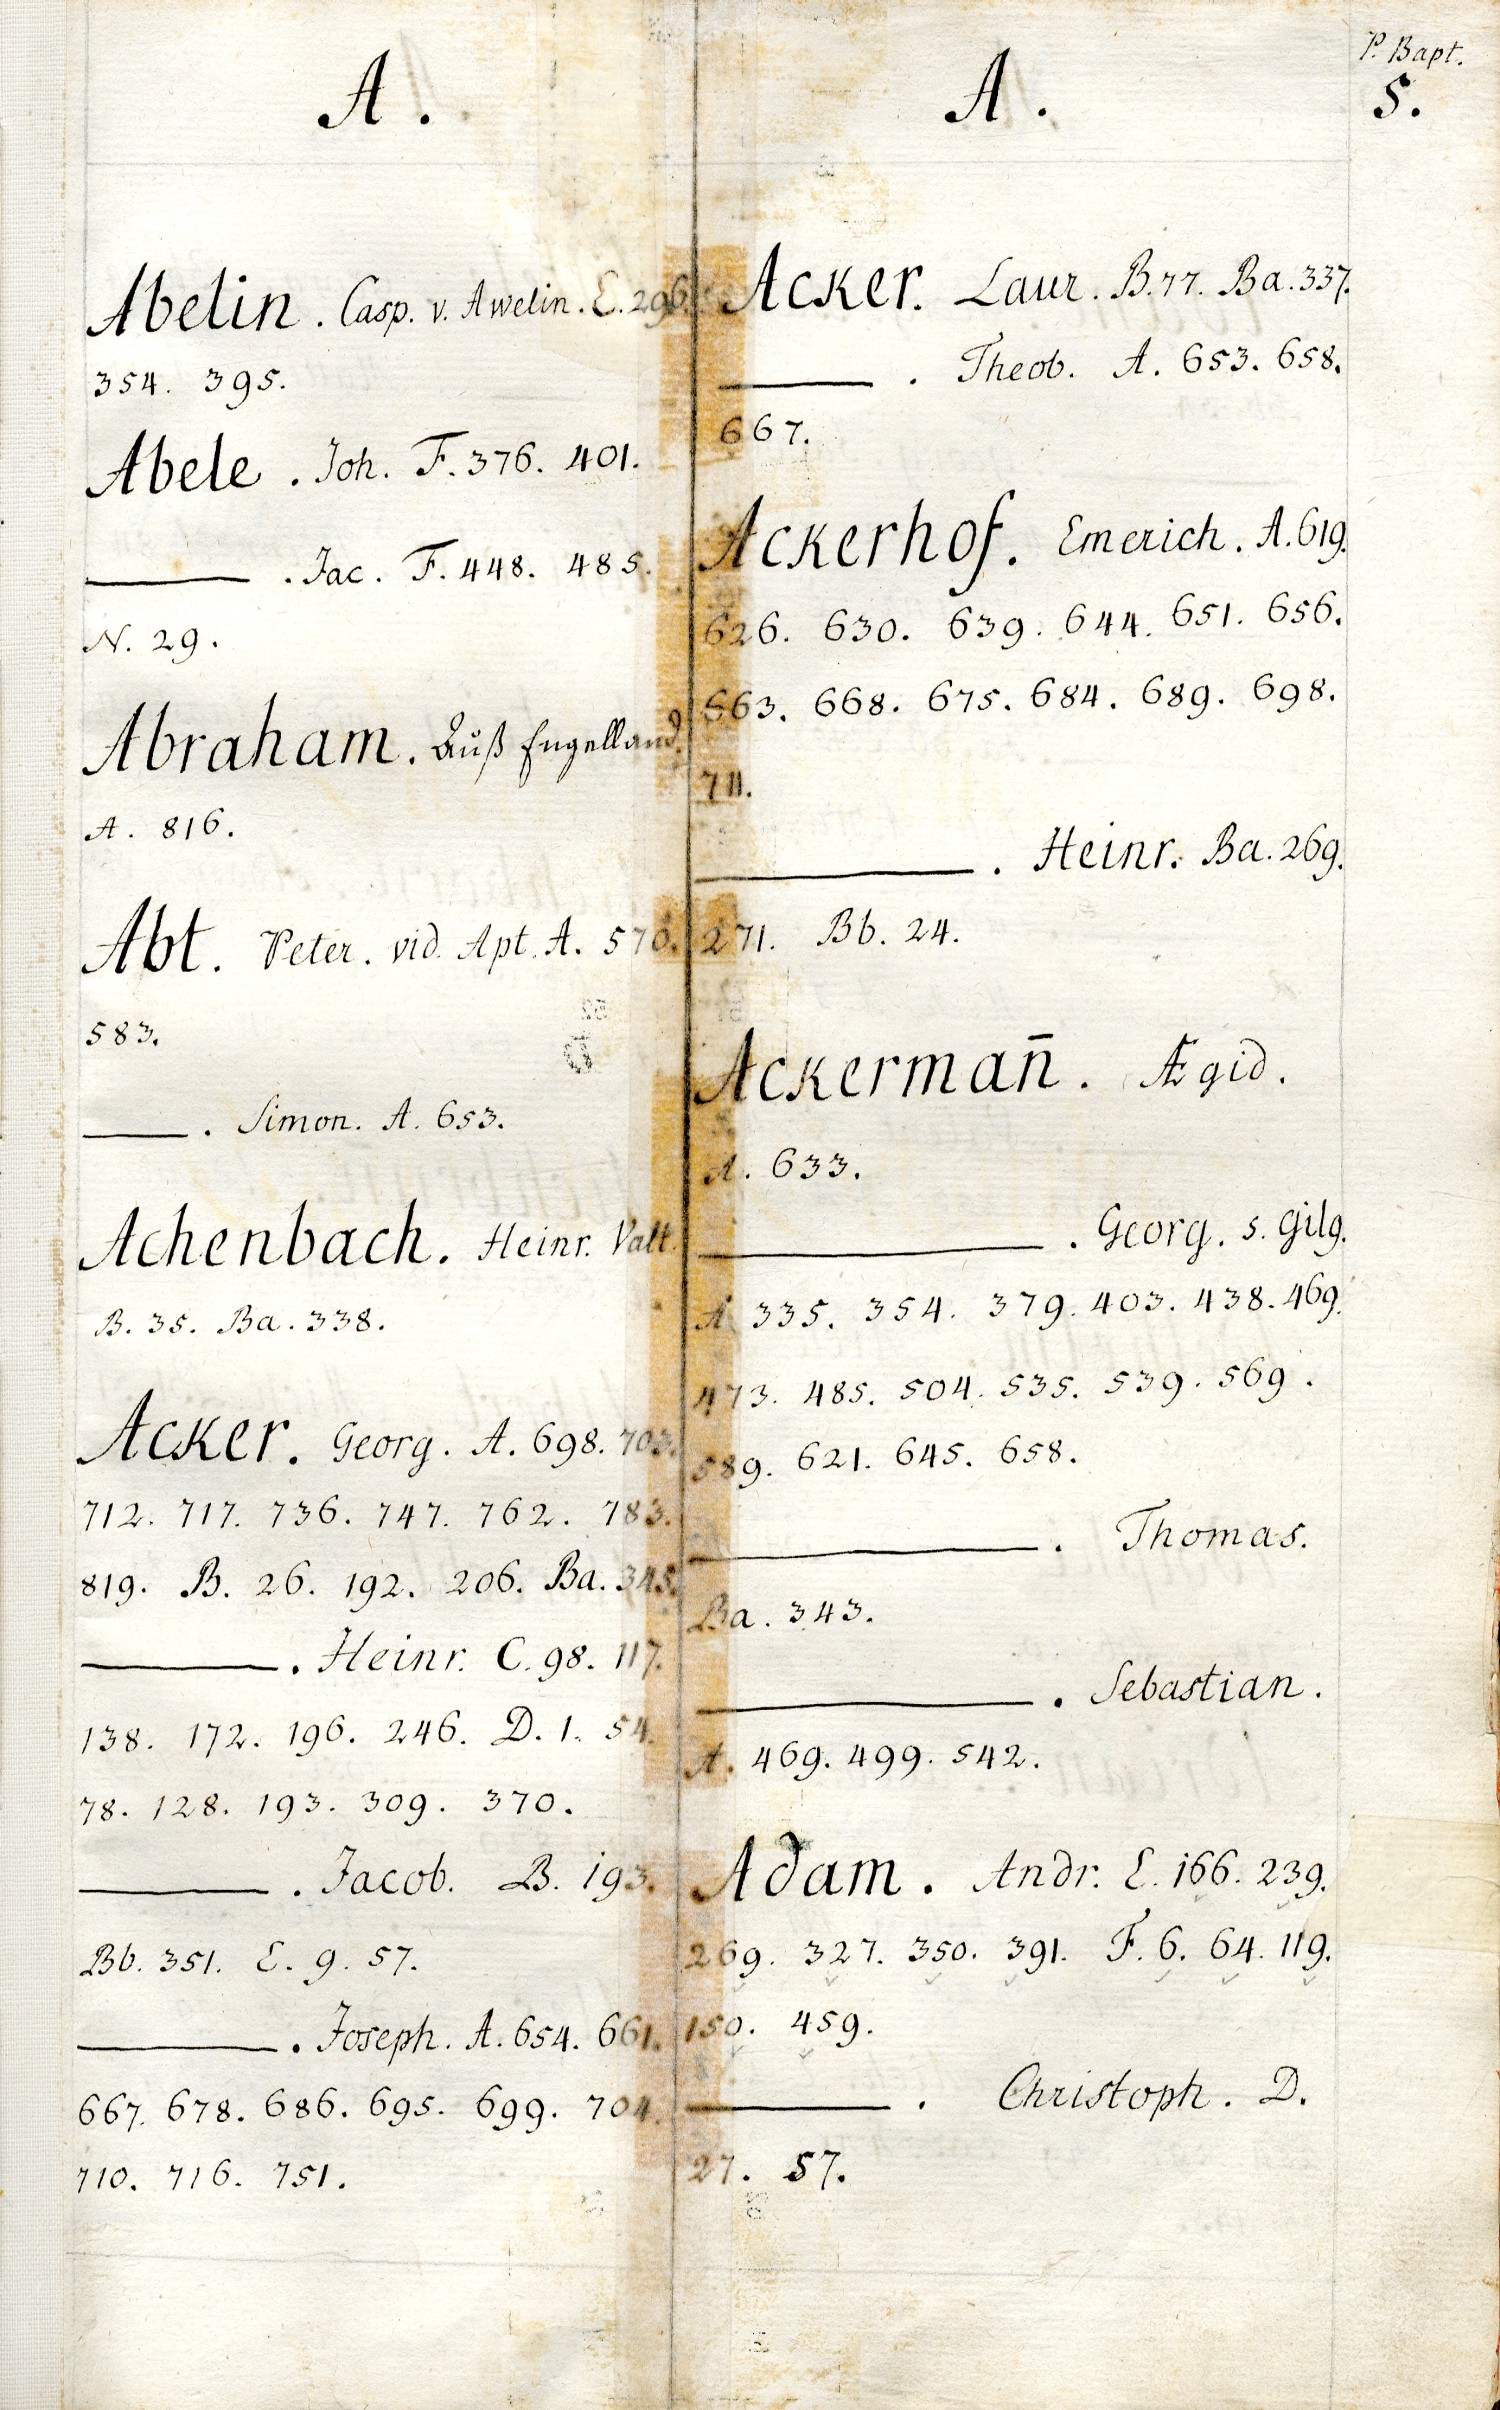 P. Bapt.
5.
A.
Abelin. Casp. v. Awelin. E. 296.
354. 395.
Abele. Joh. F. 376. 401.
———. Jac. F. 448. 485.
N. 29.
Abraham. Auß Engelland.
A. 816.
Abt. Peter. vid. Apt. A. 570.
583.
———. Simon. A. 653.
Achenbach. Heinr. Valt.
B. 35. Ba. 338.
Acker. Georg. A. 698. 703.
712. 717. 736. 747. 762. 783.
819. B. 26. 192. 206. Ba. 345.
———. Heinr. C. 98. 117.
138. 172. 196. 246. D. 1. 54.
78. 128. 193. 309. 370.
———. Jacob. B. 193.
Bb. 351. E. 9. 57.
———. Joseph. A. 654. 661.
667. 678. 686. 695. 699. 704.
710. 716. 751.
A.
Acker. Laur. B. 77. Ba. 337.
———. Theob. A. 653. 658.
667.
Ackerhof. Emerich. A. 619.
626. 630. 639. 644. 651. 656.
663. 668. 675. 684. 689. 698.
711.
———. Heinr. Ba. 269.
271. Bb. 24.
Ackermañ. Ægid.
A. 633.
———. Georg. s. Gilg.
A. 335. 354. 379. 403. 438. 469.
473. 485. 504. 535. 539. 569.
589. 621. 645. 658.
———. Thomas.
Ba. 343.
———. Sebastian.
A. 469. 499. 542.
Adam. Andr. E. 166. 239.
269. 327. 350. 391. F. 6. 64. 119.
150. 459.
———. Christoph. D.
27. 57.